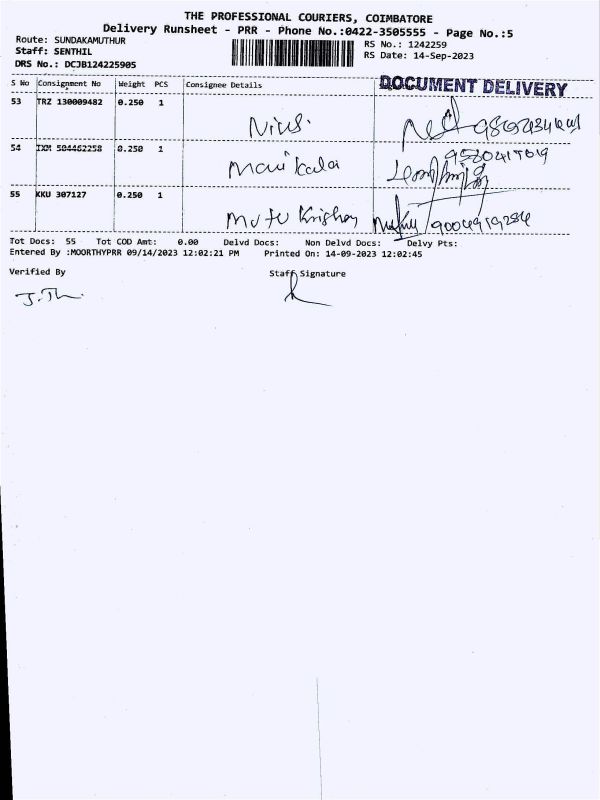 THE PROFESSIONAL COURIERS, COIMBATORE
Delivery Runsheet - PRR - Phone No.:0422-3505555 - Page No.:5
Route: SUNDAKAMUTHUR
Staff: SENTHIL
DRS No.: DCJB124225905
RS No.: 1242259
RS Date: 14-Sep-2023
DOCUMENT DELIVERY
S No Consignment No Weight PCS Consignee Details
53 TRZ 130009482 0.250 1
54 IXM 504462258 0.250 1
Mani kalai
55 KKU 307127 0.250 1
Mutu Krishnan
Tot Docs: 55 Tot COD Amt: 0.00 Delvd Docs: Non Delvd Docs: Delvy Pts:
Entered By :MOORTHYPRR 09/14/2023 12:02:21 PM Printed On: 14-09-2023 12:02:45
Verified By Staff Signature